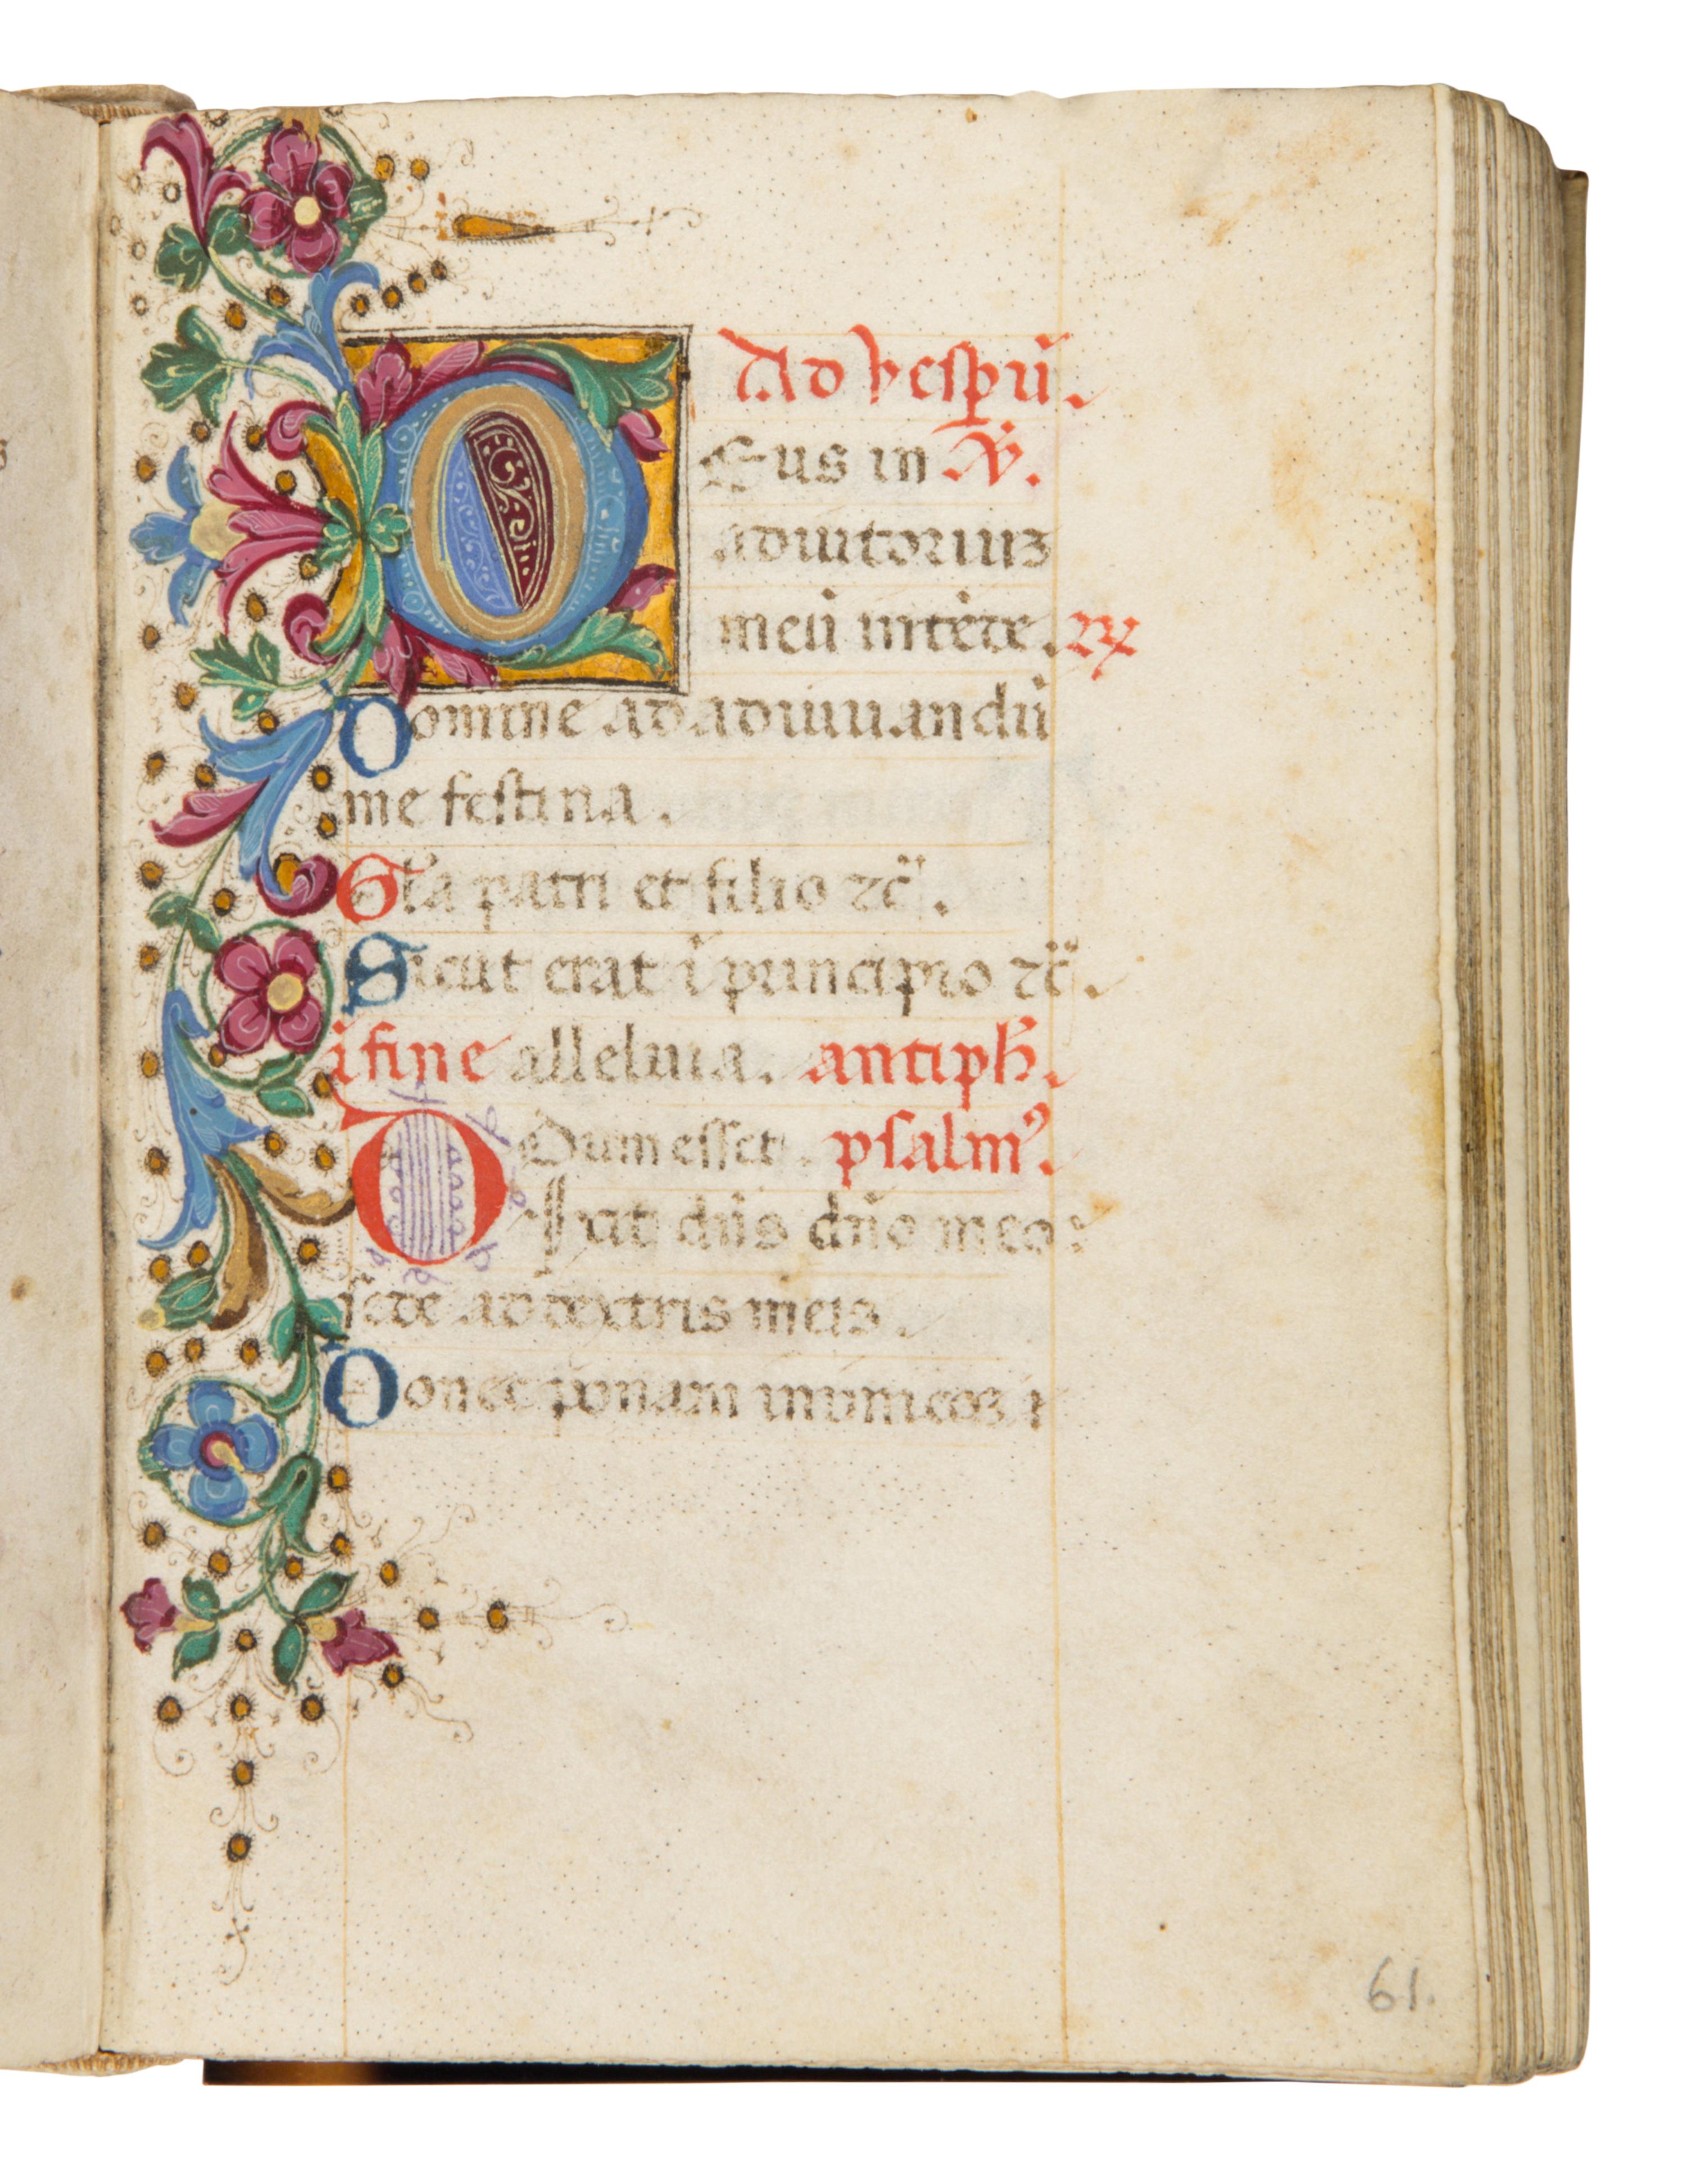 Ad vespū.
DEus in ℣.
adiutoriuꝫ
meū intēde. ℞
Domine ad adiuuandū
me festina.
Gl̄a patri et filio ⁊c̈.
Sicut erat ī principio ⁊c̈.
ī fine alleluia. antiph̄.
Dum esset. psalmꝰ.
DIxit dn̄s dn̄o meo:
sede ad dextris meis.
Donec ponam inimicos
61.